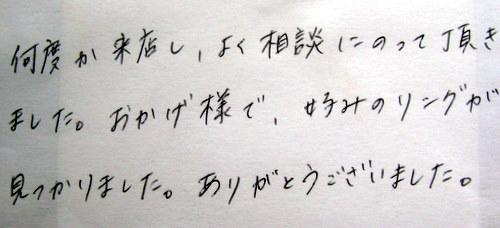 何度か来店し、よく相談にのって頂き
ました。おかげ様で、好みのリングが
見つかりました。ありがとうございました。